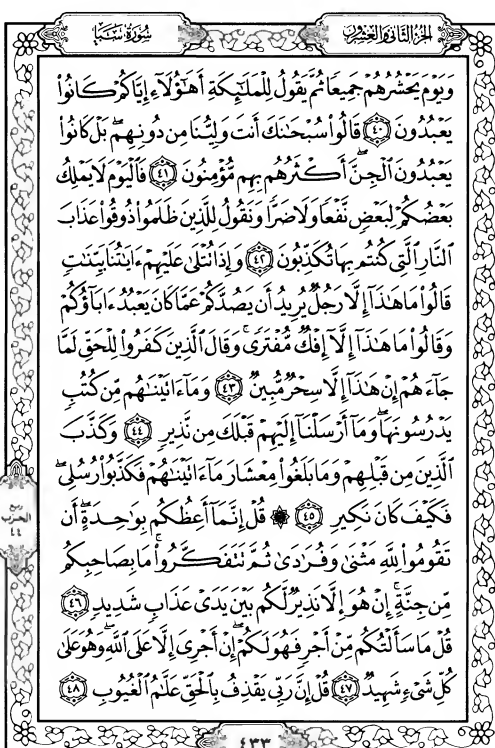 الجزء الثاني والعشرون
سورة سبإ
وَيَوْمَ يَحْشُرُهُمْ جَمِيعًا ثُمَّ يَقُولُ لِلْمَلَٰٓئِكَةِ أَهَٰٓؤُلَآءِ إِيَّاكُمْ كَانُوا۟
يَعْبُدُونَ ٤٠ قَالُوا۟ سُبْحَٰنَكَ أَنتَ وَلِيُّنَا مِن دُونِهِم ۖ بَلْ كَانُوا۟
يَعْبُدُونَ ٱلْجِنَّ ۖ أَكْثَرُهُم بِهِم مُّؤْمِنُونَ ٤١ فَٱلْيَوْمَ لَا يَمْلِكُ
بَعْضُكُمْ لِبَعْضٍ نَّفْعًا وَلَا ضَرًّا وَنَقُولُ لِلَّذِينَ ظَلَمُوا۟ ذُوقُوا۟ عَذَابَ
ٱلنَّارِ ٱلَّتِى كُنتُم بِهَا تُكَذِّبُونَ ٤٢ وَإِذَا تُتْلَىٰ عَلَيْهِمْ ءَايَٰتُنَا بَيِّنَٰتٍ
قَالُوا۟ مَا هَٰذَآ إِلَّا رَجُلٌ يُرِيدُ أَن يَصُدَّكُمْ عَمَّا كَانَ يَعْبُدُ ءَابَآؤُكُمْ
وَقَالُوا۟ مَا هَٰذَآ إِلَّآ إِفْكٌ مُّفْتَرًى ۚ وَقَالَ ٱلَّذِينَ كَفَرُوا۟ لِلْحَقِّ لَمَّا
جَآءَهُمْ إِنْ هَٰذَآ إِلَّا سِحْرٌ مُّبِينٌ ٤٣ وَمَآ ءَاتَيْنَٰهُم مِّن كُتُبٍ
يَدْرُسُونَهَا ۖ وَمَآ أَرْسَلْنَآ إِلَيْهِمْ قَبْلَكَ مِن نَّذِيرٍ ٤٤ وَكَذَّبَ
ٱلَّذِينَ مِن قَبْلِهِمْ وَمَا بَلَغُوا۟ مِعْشَارَ مَآ ءَاتَيْنَٰهُمْ فَكَذَّبُوا۟ رُسُلِى ۖ
فَكَيْفَ كَانَ نَكِيرِ ٤٥ ۞ قُلْ إِنَّمَآ أَعِظُكُم بِوَٰحِدَةٍ ۖ أَن
تَقُومُوا۟ لِلَّهِ مَثْنَىٰ وَفُرَٰدَىٰ ثُمَّ تَتَفَكَّرُوا۟ ۚ مَا بِصَاحِبِكُم
مِّن جِنَّةٍ ۚ إِنْ هُوَ إِلَّا نَذِيرٌ لَّكُم بَيْنَ يَدَىْ عَذَابٍ شَدِيدٍ ٤٦
قُلْ مَا سَأَلْتُكُم مِّنْ أَجْرٍ فَهُوَ لَكُمْ ۖ إِنْ أَجْرِىَ إِلَّا عَلَى ٱللَّهِ ۖ وَهُوَ عَلَىٰ
كُلِّ شَىْءٍ شَهِيدٌ ٤٧ قُلْ إِنَّ رَبِّى يَقْذِفُ بِٱلْحَقِّ عَلَّٰمُ ٱلْغُيُوبِ ٤٨
ربع
الحزب
٤٤
٤٣٣